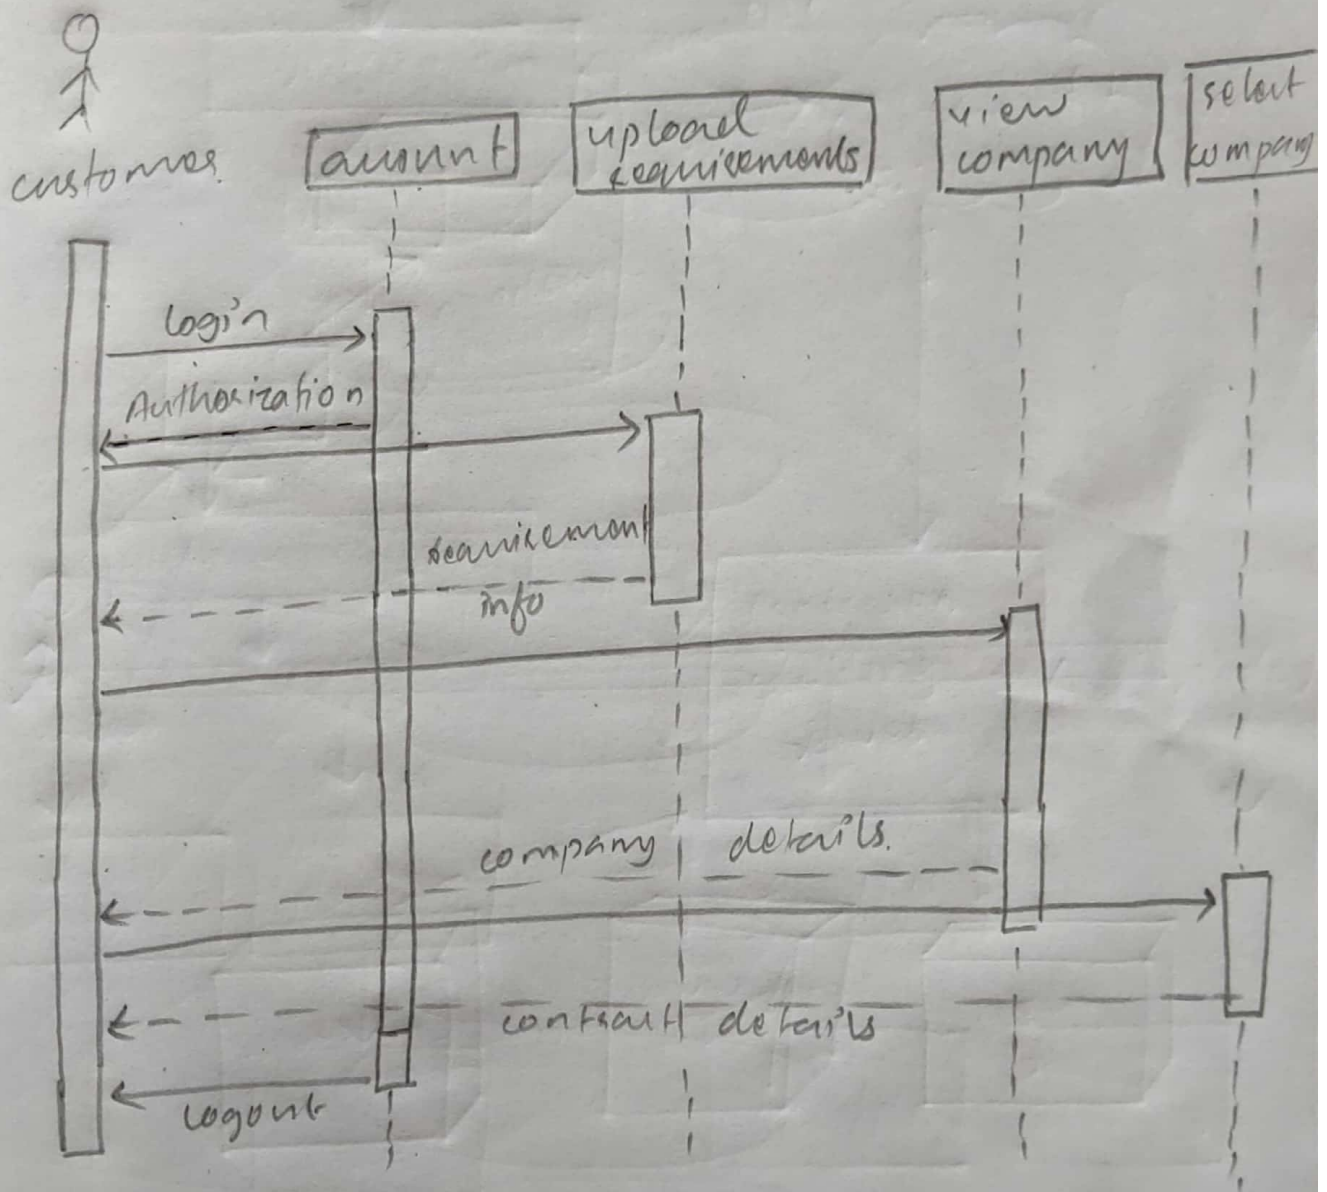 customer.
account
upload
requirements
view
company
select
company
Login
Authorization
requirement
info
company details.
contract details
Logout